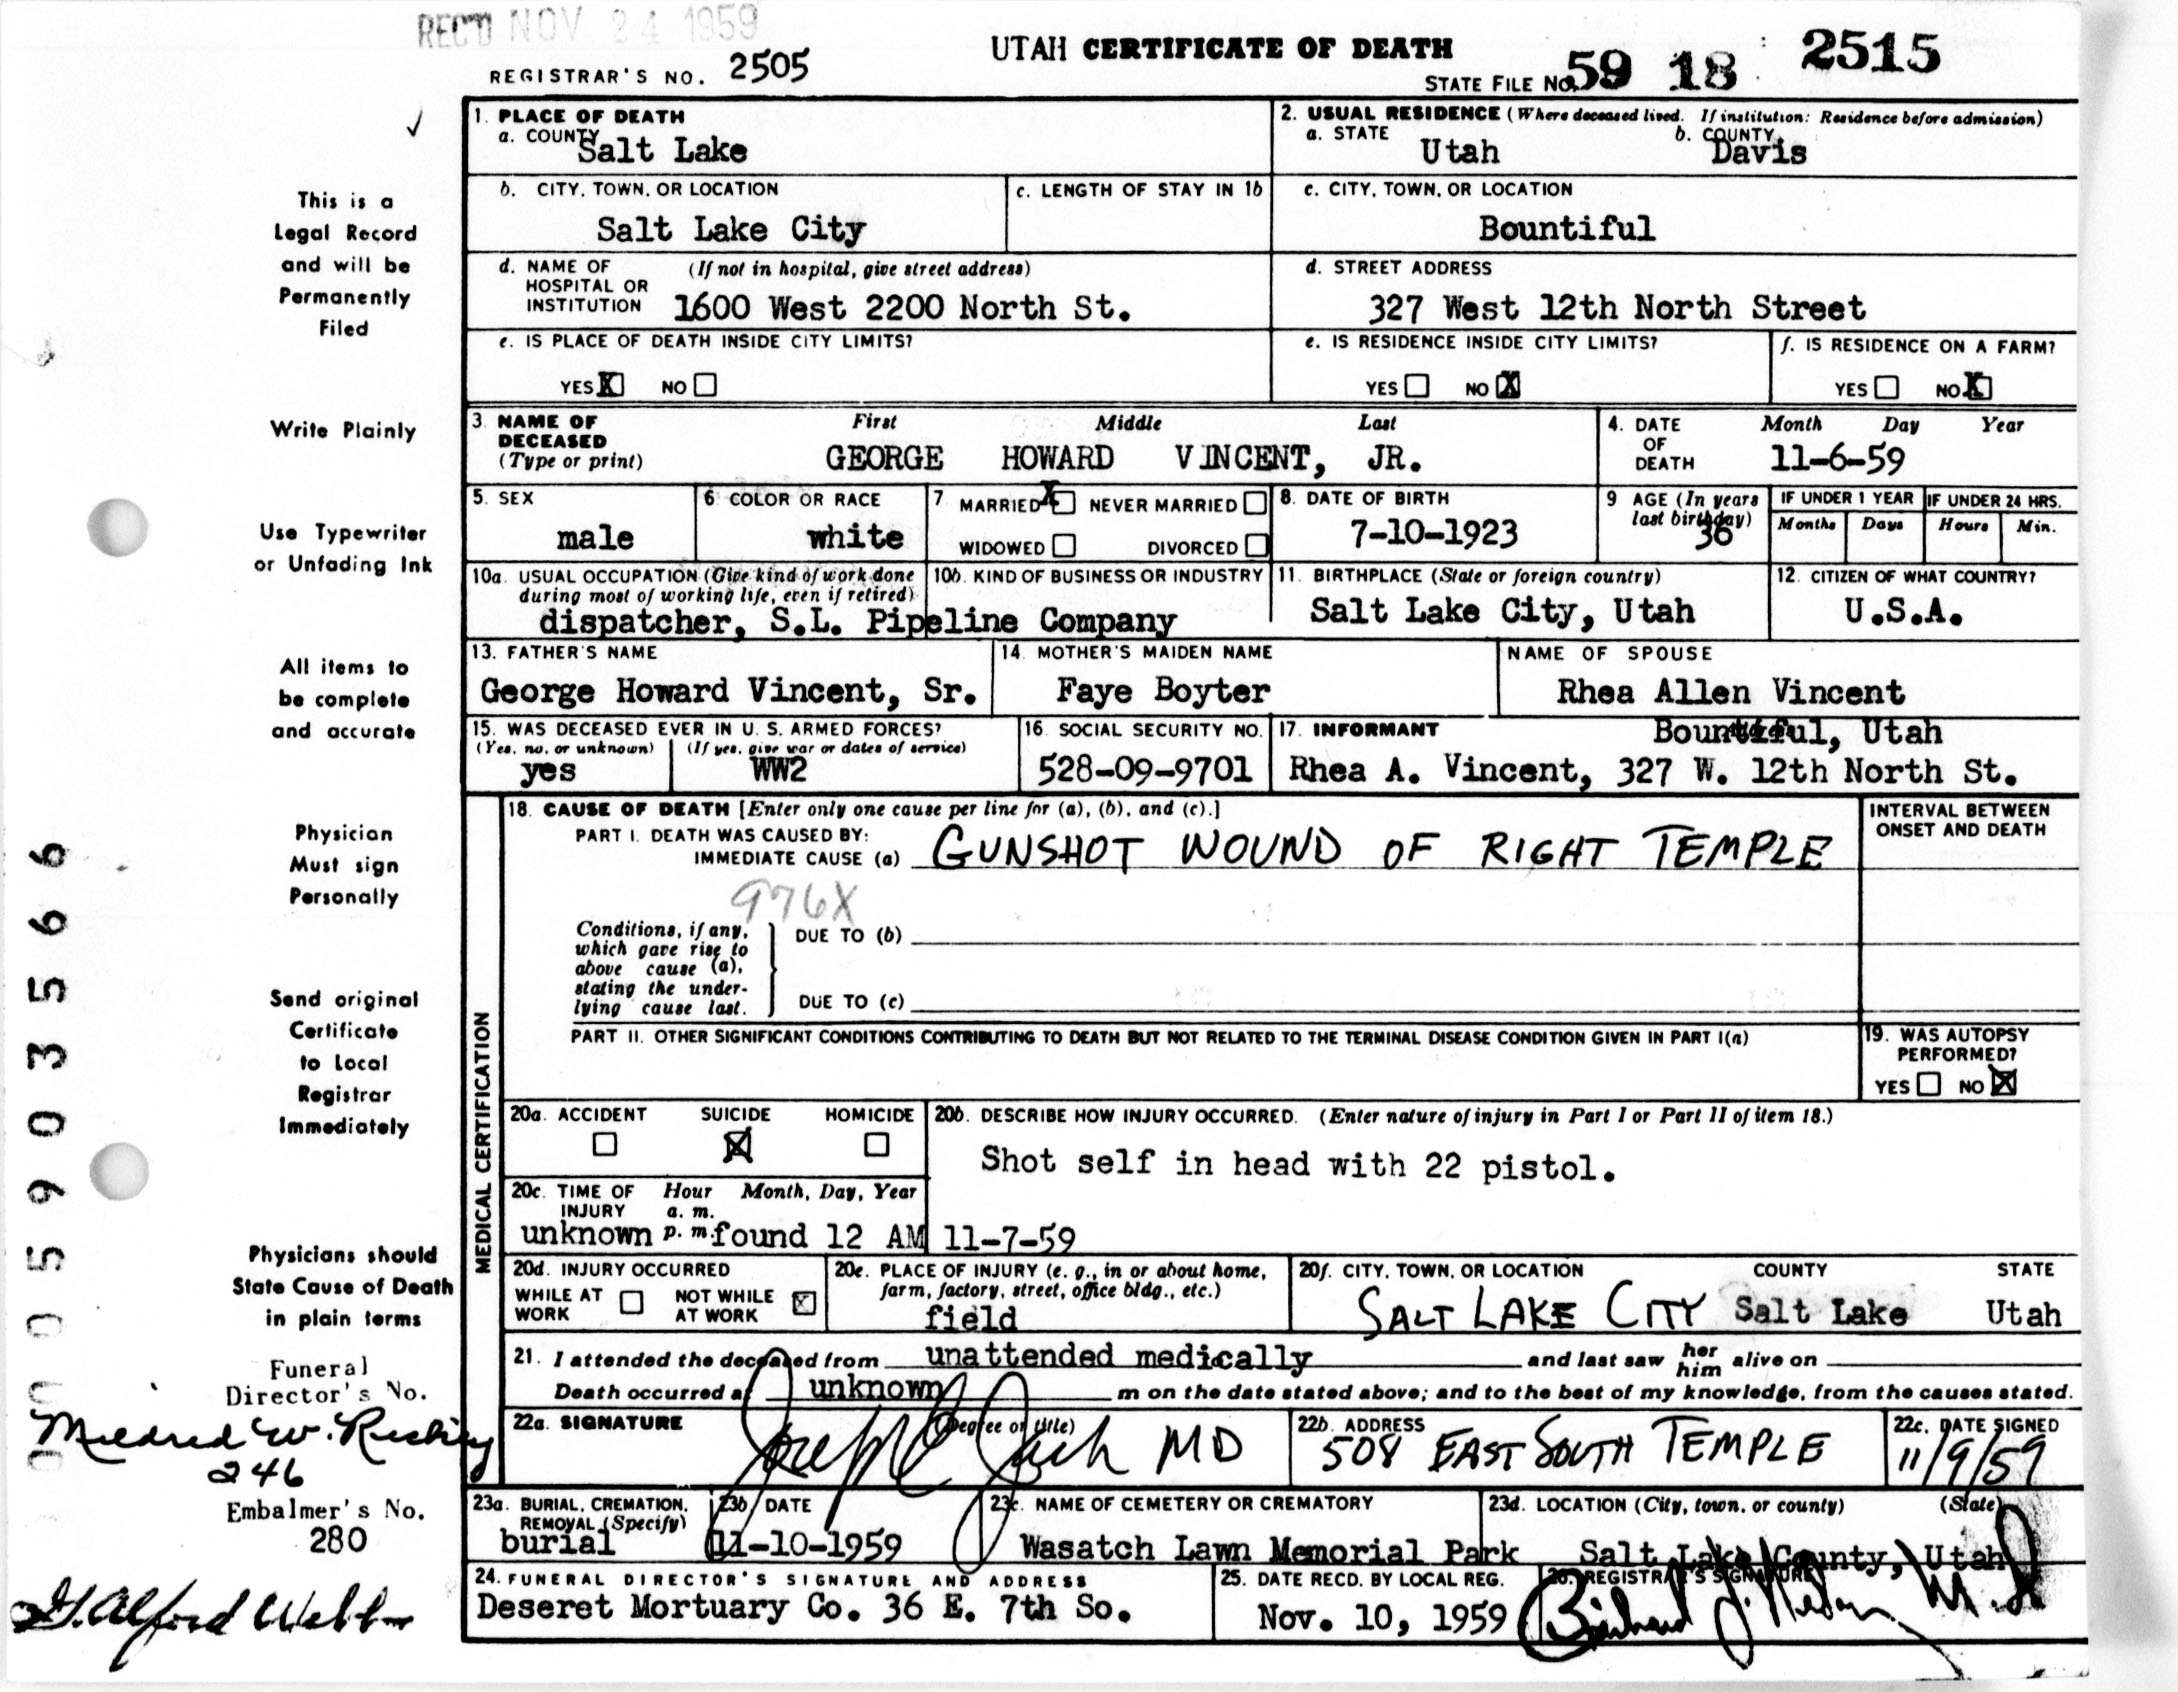 REC'D NOV 24 1959
UTAH CERTIFICATE OF DEATH
REGISTRAR'S NO. 2505
STATE FILE NO. 59 18 2515
1. PLACE OF DEATH
a. COUNTY
Salt Lake
2. USUAL RESIDENCE (Where deceased lived. If institution: Residence before admission)
a. STATE
Utah
b. COUNTY
Davis
b. CITY, TOWN, OR LOCATION
Salt Lake City
c. LENGTH OF STAY IN 1b
c. CITY, TOWN, OR LOCATION
Bountiful
d. NAME OF HOSPITAL OR INSTITUTION (If not in hospital, give street address)
1600 West 2200 North St.
d. STREET ADDRESS
327 West 12th North Street
e. IS PLACE OF DEATH INSIDE CITY LIMITS?
YES X NO
e. IS RESIDENCE INSIDE CITY LIMITS?
YES NO X
f. IS RESIDENCE ON A FARM?
YES NO X
3. NAME OF DECEASED (Type or print)
First Middle Last
GEORGE HOWARD VINCENT, JR.
4. DATE OF DEATH
Month Day Year
11-6-59
5. SEX
male
6. COLOR OR RACE
white
7 MARRIED X NEVER MARRIED
WIDOWED DIVORCED
8. DATE OF BIRTH
7-10-1923
9 AGE (In years last birthday)
36
IF UNDER 1 YEAR
Months Days
IF UNDER 24 HRS.
Hours Min.
10a. USUAL OCCUPATION (Give kind of work done during most of working life, even if retired)
10b. KIND OF BUSINESS OR INDUSTRY
dispatcher, S.L. Pipeline Company
11. BIRTHPLACE (State or foreign country)
Salt Lake City, Utah
12. CITIZEN OF WHAT COUNTRY?
U.S.A.
13. FATHER'S NAME
George Howard Vincent, Sr.
14. MOTHER'S MAIDEN NAME
Faye Boyter
NAME OF SPOUSE
Rhea Allen Vincent
15. WAS DECEASED EVER IN U. S. ARMED FORCES?
(Yes, no, or unknown) (If yes, give war or dates of service)
yes WW2
16. SOCIAL SECURITY NO.
528-09-9701
17. INFORMANT
Bountiful, Utah
Rhea A. Vincent, 327 W. 12th North St.
MEDICAL CERTIFICATION
18. CAUSE OF DEATH [Enter only one cause per line for (a), (b), and (c).]
PART I. DEATH WAS CAUSED BY:
IMMEDIATE CAUSE (a) GUNSHOT WOUND OF RIGHT TEMPLE
INTERVAL BETWEEN ONSET AND DEATH
976X
Conditions, if any, which gave rise to above cause (a), stating the underlying cause last.
DUE TO (b)
DUE TO (c)
PART II. OTHER SIGNIFICANT CONDITIONS CONTRIBUTING TO DEATH BUT NOT RELATED TO THE TERMINAL DISEASE CONDITION GIVEN IN PART I(a)
19. WAS AUTOPSY PERFORMED?
YES NO X
20a. ACCIDENT SUICIDE HOMICIDE
X
20b. DESCRIBE HOW INJURY OCCURRED. (Enter nature of injury in Part I or Part II of item 18.)
Shot self in head with 22 pistol.
20c. TIME OF INJURY Hour Month, Day, Year
a. m.
p. m.
unknown found 12 AM 11-7-59
20d. INJURY OCCURRED
WHILE AT WORK NOT WHILE AT WORK X
20e. PLACE OF INJURY (e. g., in or about home, farm, factory, street, office bldg., etc.)
field
20f. CITY, TOWN, OR LOCATION COUNTY STATE
SALT LAKE CITY Salt Lake Utah
21. I attended the deceased from unattended medically and last saw her him alive on
Death occurred at unknown m on the date stated above; and to the best of my knowledge, from the causes stated.
22a. SIGNATURE (Degree or title)
MD
22b. ADDRESS
508 EAST SOUTH TEMPLE
22c. DATE SIGNED
11/9/59
23a. BURIAL, CREMATION, REMOVAL (Specify)
burial
23b. DATE
11-10-1959
23c. NAME OF CEMETERY OR CREMATORY
Wasatch Lawn Memorial Park
23d. LOCATION (City, town, or county) (State)
Salt Lake County, Utah
24. FUNERAL DIRECTOR'S SIGNATURE AND ADDRESS
Deseret Mortuary Co. 36 E. 7th So.
25. DATE RECD. BY LOCAL REG.
Nov. 10, 1959
26. REGISTRAR'S SIGNATURE
This is a
Legal Record
and will be
Permanently
Filed
Write Plainly
Use Typewriter
or Unfading Ink
All items to
be complete
and accurate
Physician
Must sign
Personally
Send original
Certificate
to Local
Registrar
Immediately
Physicians should
State Cause of Death
in plain terms
Funeral
Director's No.
246
Embalmer's No.
280